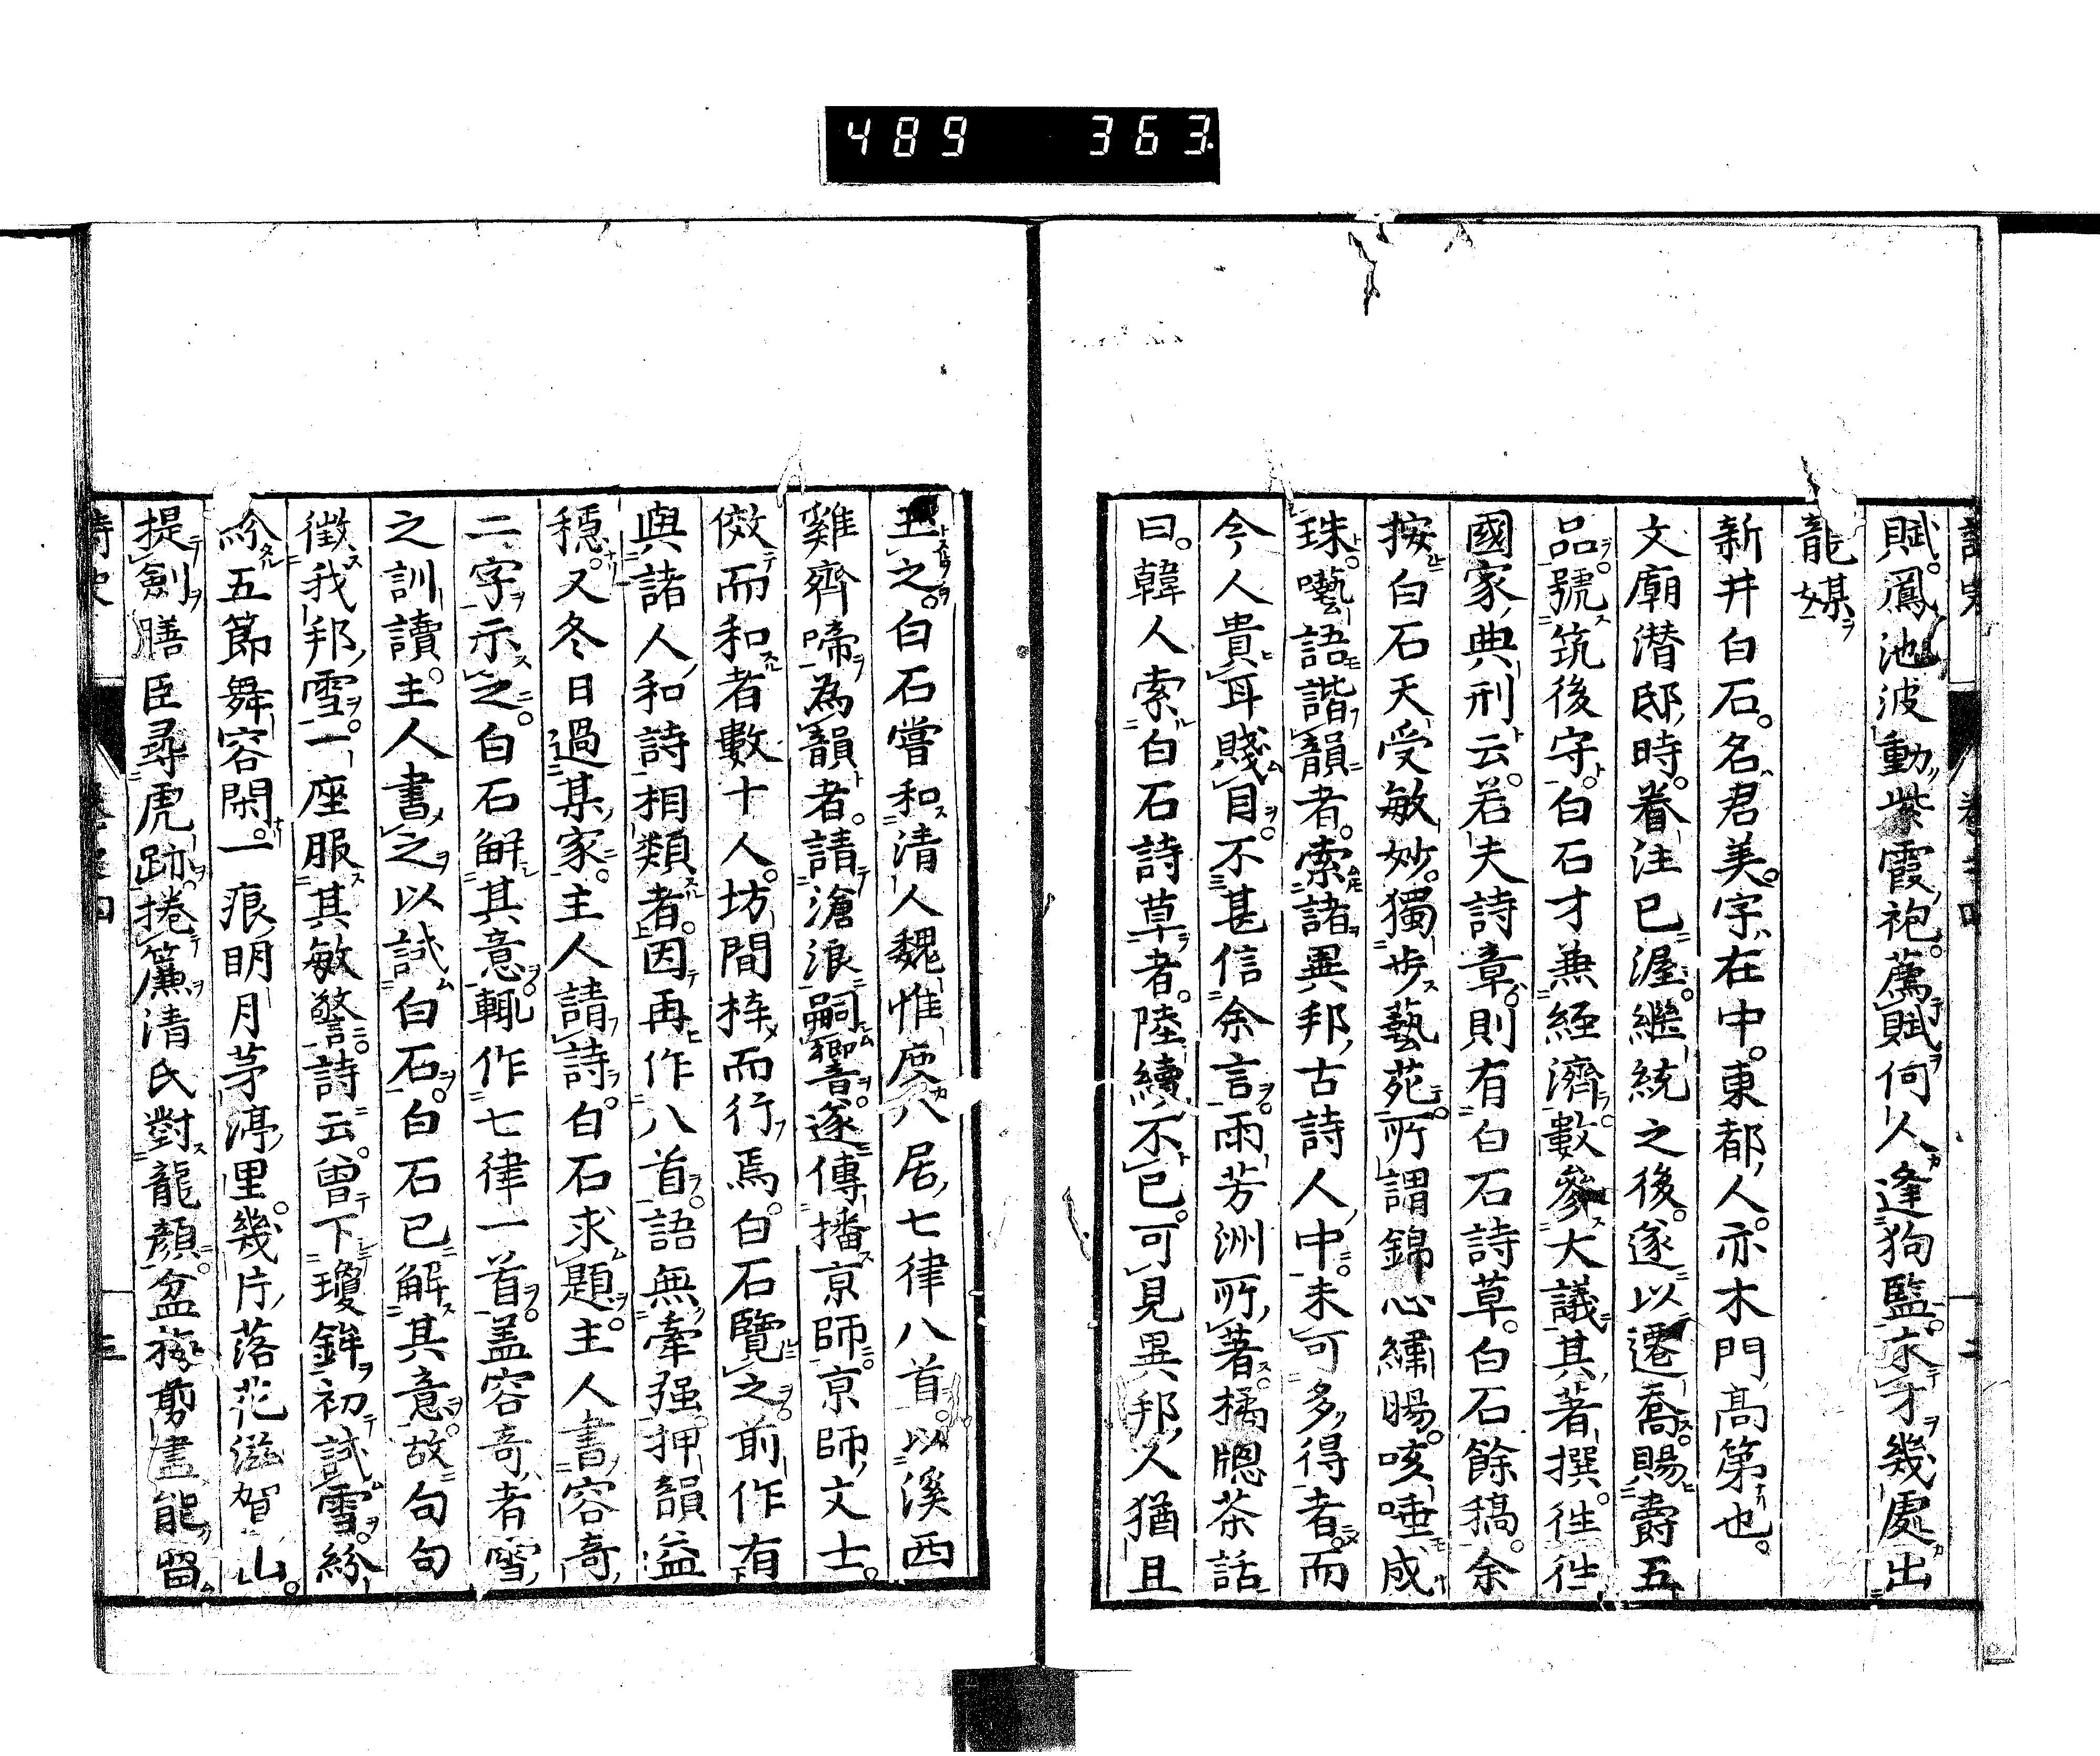 489 363
賦。鳳池波動紫霞袍。薦賦何人逢狗監。求才幾處出
龍媒
新井白石。名君美。字在中。東都人。亦木門高第也。
文廟潛邸時。眷注已渥。繼統之後。遂以遷喬賜爵五
品。號筑後守。白石才兼經濟。數參大議。其著撰。徃徃
國家典刑云。若夫詩章。則有白石詩草。白石餘稿。余
按白石天受敏妙。獨歩藝苑。所謂錦心繡腸。咳唾成
珠。囈語諧韻者。索諸異邦古詩人中。未可多得者。而
今人貴耳賤目。不甚信余言。雨芳洲所著橘牕茶話
曰。韓人索白石詩草者。陸續不已。可見異邦人猶且
玉之。白石嘗和清人魏惟度八居七律八首。以溪西
雞齊啼為韻者。請滄浪嗣響。遂傳播京師。京師文士。
傚而和者數十人。坊間梓而行焉。白石覽之。前作有
與諸人和詩相類者。因再作八首。語無牽强。押韻益
穩。又冬日過某家。主人請詩。白石求題。主人書容奇
二字示之。白石解其意。輒作七律一首。盖容奇者雪
之訓讀。主人書之以試白石。白石已解其意。故句句
徵我邦雪。一座服其敏警。詩云。曾下瓊鉾初試雪。紛
紛五節舞容閑。一痕明月茅渟里。幾片落花滋賀山。
提劍膳臣尋虎跡。捲簾清氏對龍顏。盆梅剪盡能留